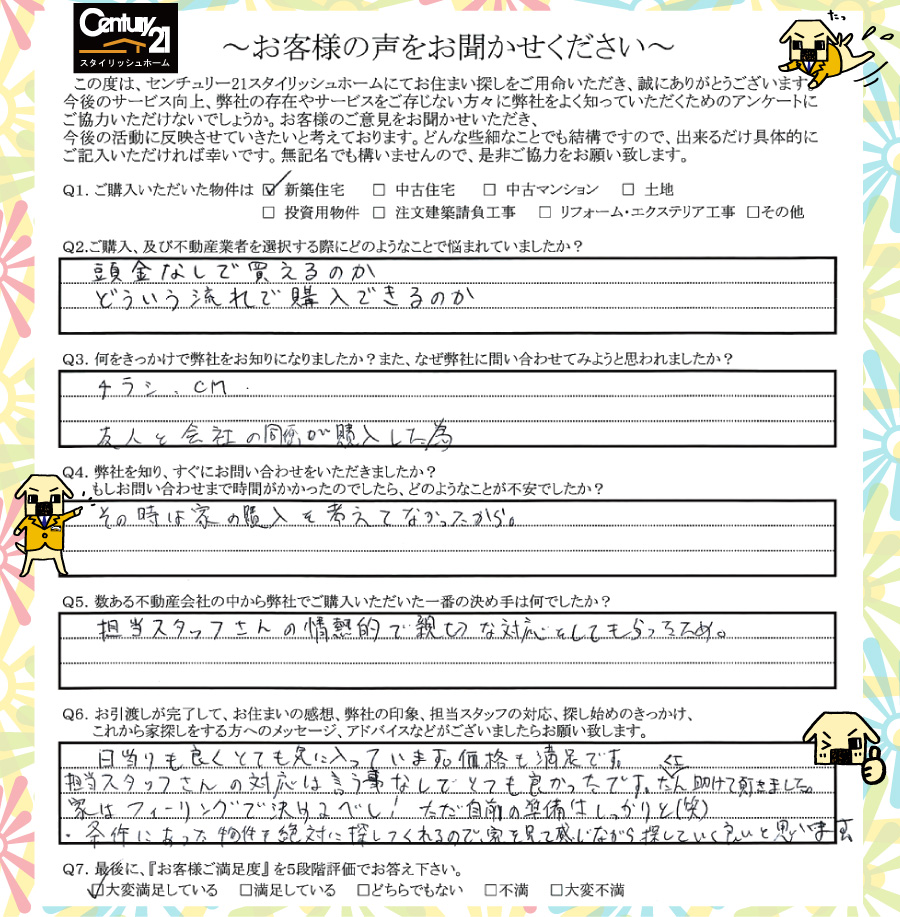 Century 21
スタイリッシュホーム
～お客様の声をお聞かせください～
たっ
この度は、センチュリー21スタイリッシュホームにてお住まい探しをご用命いただき、誠にありがとうございます
今後のサービス向上、弊社の存在やサービスをご存じない方々に弊社をよく知っていただくためのアンケートに
ご協力いただけないでしょうか。お客様のご意見をお聞かせいただき、
今後の活動に反映させていきたいと考えております。どんな些細なことでも結構ですので、出来るだけ具体的に
ご記入いただければ幸いです。無記名でも構いませんので、是非ご協力をお願い致します。
Q1. ご購入いただいた物件は ☑ 新築住宅 □ 中古住宅 □ 中古マンション □ 土地
□ 投資用物件 □ 注文建築請負工事 □ リフォーム・エクステリア工事 □その他
Q2.ご購入、及び不動産業者を選択する際にどのようなことで悩まれていましたか？
頭金なしで買えるのか
どういう流れで購入できるのか
Q3. 何をきっかけで弊社をお知りになりましたか？また、なぜ弊社に問い合わせてみようと思われましたか？
チラシ、CM.
友人と会社の同僚が購入した為
Q4. 弊社を知り、すぐにお問い合わせをいただきましたか？
もしお問い合わせまで時間がかかったのでしたら、どのようなことが不安でしたか？
その時は家の購入を考えてなかったから。
Q5. 数ある不動産会社の中から弊社でご購入いただいた一番の決め手は何でしたか？
担当スタッフさんの情熱的で親切な対応をしてもらったため。
Q6. お引渡しが完了して、お住まいの感想、弊社の印象、担当スタッフの対応、探し始めのきっかけ、
これから家探しをする方へのメッセージ、アドバイスなどがございましたらお願い致します。
日当りも良くとても気に入っています。価格も満足です。
担当スタッフさんの対応は言う事なしでとても良かったです。たくさん助けて頂きました。
家はフィーリングで決めるべし！ただ自前の準備はしっかりと(笑)
・条件にあった物件を絶対に探してくれるので、家を見て感じながら探していく良いと思います
Q7. 最後に、『お客様ご満足度』を5段階評価でお答え下さい。
☑大変満足している □満足している □どちらでもない □不満 □大変不満